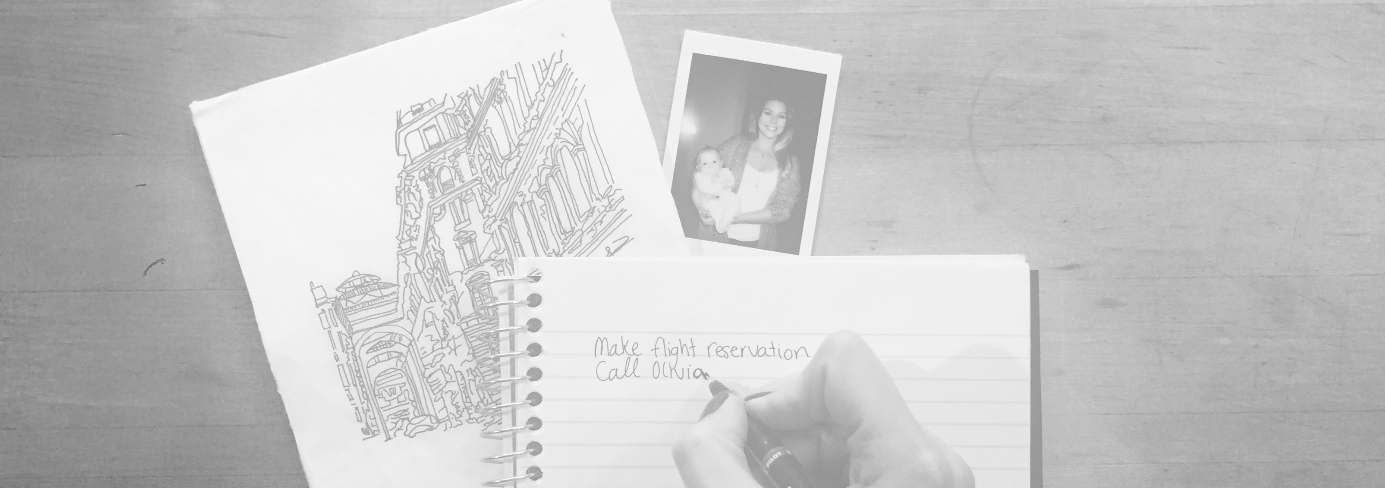 Make flight reservation
Call Olivia
PILOT